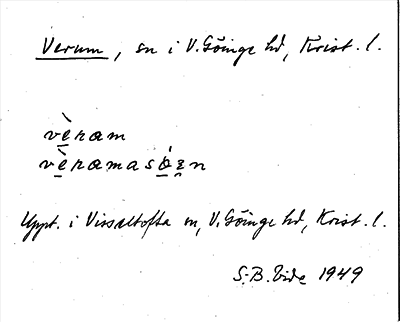 Verum, sn i V. Göinge hd, Krist. l.
vèram
vèramasózn
Uppt. i Vissaltofta sn, V. Göinge hd, Krist. l.
S.-B. Vide 1949